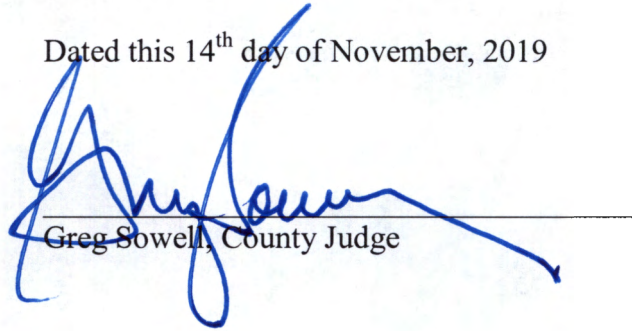 Dated this 14th day of November, 2019
Greg Sowell
Greg Sowell, County Judge